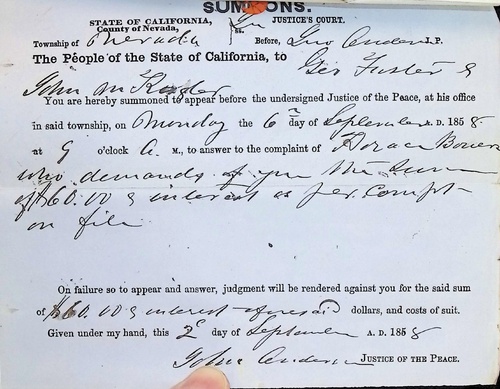 SUMMONS.
STATE OF CALIFORNIA, In JUSTICE'S COURT.
County of Nevada, ss.
Township of Nevada Before, Geo Anderson J.P.
The People of the State of California, to Geo Fuster &
John M
You are hereby summoned to appear before the undersigned Justice of the Peace, at his office
in said township, on Monday the 6 day of September A. D. 1858
at 9 o'clock A. M., to answer to the complaint of Horace Bowen
who demands of you the sum
of $60.00 & interest as per. Compt-
on file
On failure so to appear and answer, judgment will be rendered against you for the said sum
of $60.00 & interest aforesaid dollars, and costs of suit.
Given under my hand, this 2d day of September A. D. 1858
Anderson JUSTICE OF THE PEACE.